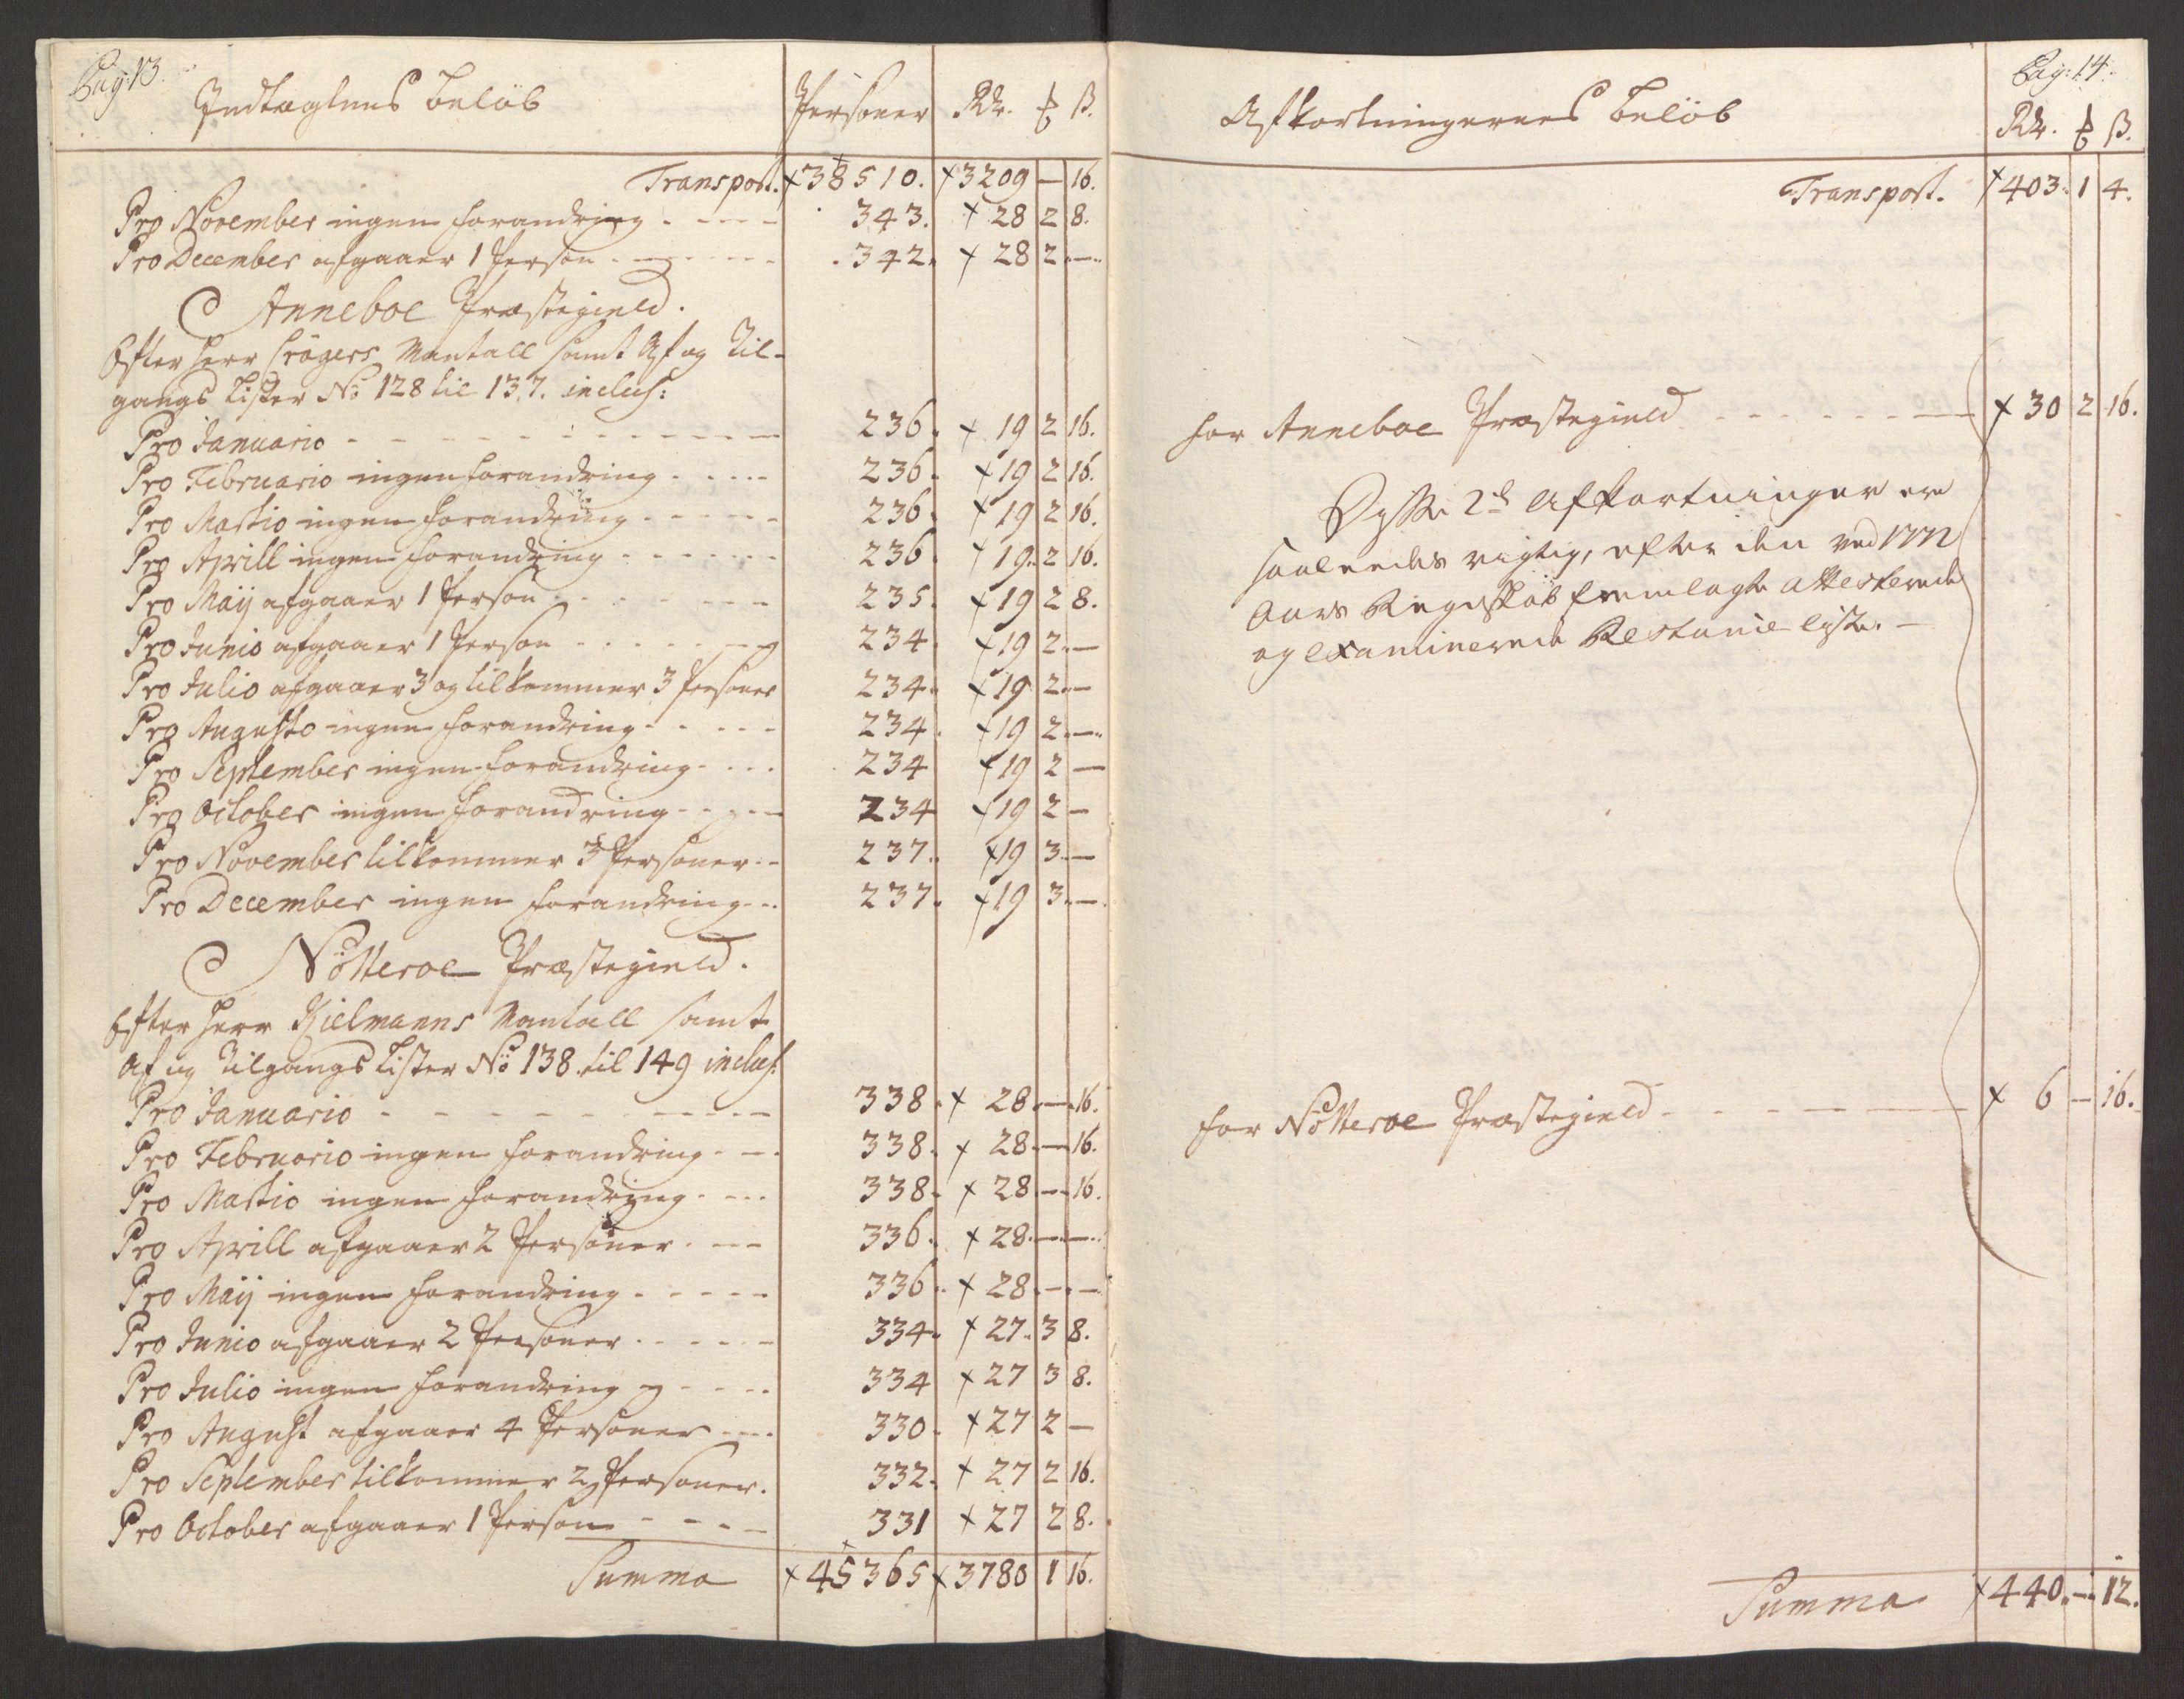 Pag: 13.
Indtægtens Beløb Personer Rdr. ₰ ß.
Transport. 38510. 3209 — 16.
Pro November ingen forandring 343. 28 2 8.
Pro December afgaaer 1 Person 342. 28 2 —
Anneboe Præstegield.
Efter Herr Crøgers Mantall samt Af og Til-
gangs Lister No 128 til 137. inclus:
Pro Januario 236. 19 2 16.
Pro Februario ingen forandring 236. 19 2 16.
Pro Martio ingen forandring 236. 19 2 16.
Pro Aprill ingen forandring 236. 19. 2 16.
Pro Maÿ afgaaer 1 Person 235. 19 2 8.
Pro Junio afgaaer 1 Person 234. 19 2 —
Pro Julio afgaaer 3 og tilkommer 3 Personer 234. 19 2 —
Pro Augusto ingen forandring 234. 19 2 —
Pro September ingen forandring 234 19 2 —
Pro October ingen forandring 234 19 2 —
Pro November tilkommer 3 Personer 237. 19 3 —
Pro December ingen forandring 237. 19 3 —
Nøtteroe Præstegield.
Efter Herr Kielmanns Mantall samt
Af og Tilgangs Lister No 138. til 149 inclus:
Pro Januario 338. 28. — 16.
Pro Februario ingen forandring 338. 28. — 16.
Pro Martio ingen forandring 338. 28. — 16.
Pro Aprill afgaaer 2 Personer 336. 28. — —
Pro Maÿ ingen forandring 336. 28. — —
Pro Junio afgaaer 2 Personer 334. 27. 3 8.
Pro Julio ingen forandring 334 27 3 8.
Pro August afgaaer 4 Personer 330. 27 2 —
Pro September tilkommer 2 Personer. 332. 27 2 16.
Pro October afgaaer 1 Person 331 27 2 8.
Summa 45365 3780 1 16.
Pag: 14.
Afkortningernes Beløb Rdr. ₰ ß.
Transport. 403. 1 4.
for Anneboe Præstegield 30 2 16.
Disse 2de Afkortninger ere
saaledes rigtig, efter den ved 1772
Aars Regnskab fremlagte attesterede
og examinerede Restance liste. —
for Nøtteroe Præstegield 6 — 16.
Summa 440. — 12.